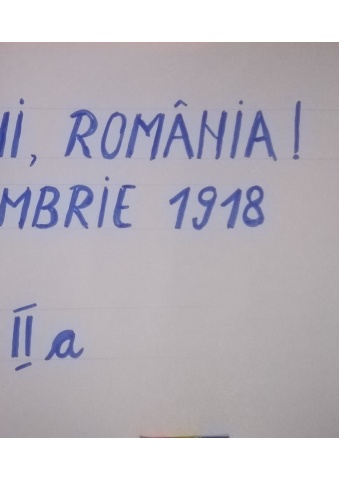 II, ROMÂNIA!
MBRIE 1918
II a